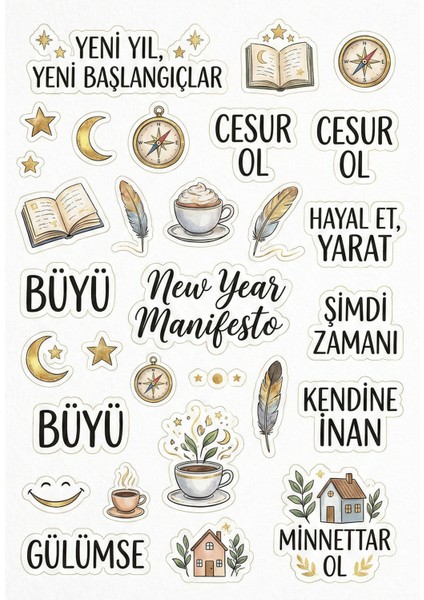 YENİ YIL,
YENİ BAŞLANGIÇLAR
CESUR
OL
CESUR
OL
HAYAL ET,
YARAT
BÜYÜ
New Year
Manifesto
ŞİMDİ
ZAMANI
BÜYÜ
KENDİNE
İNAN
GÜLÜMSE
MİNNETTAR
OL